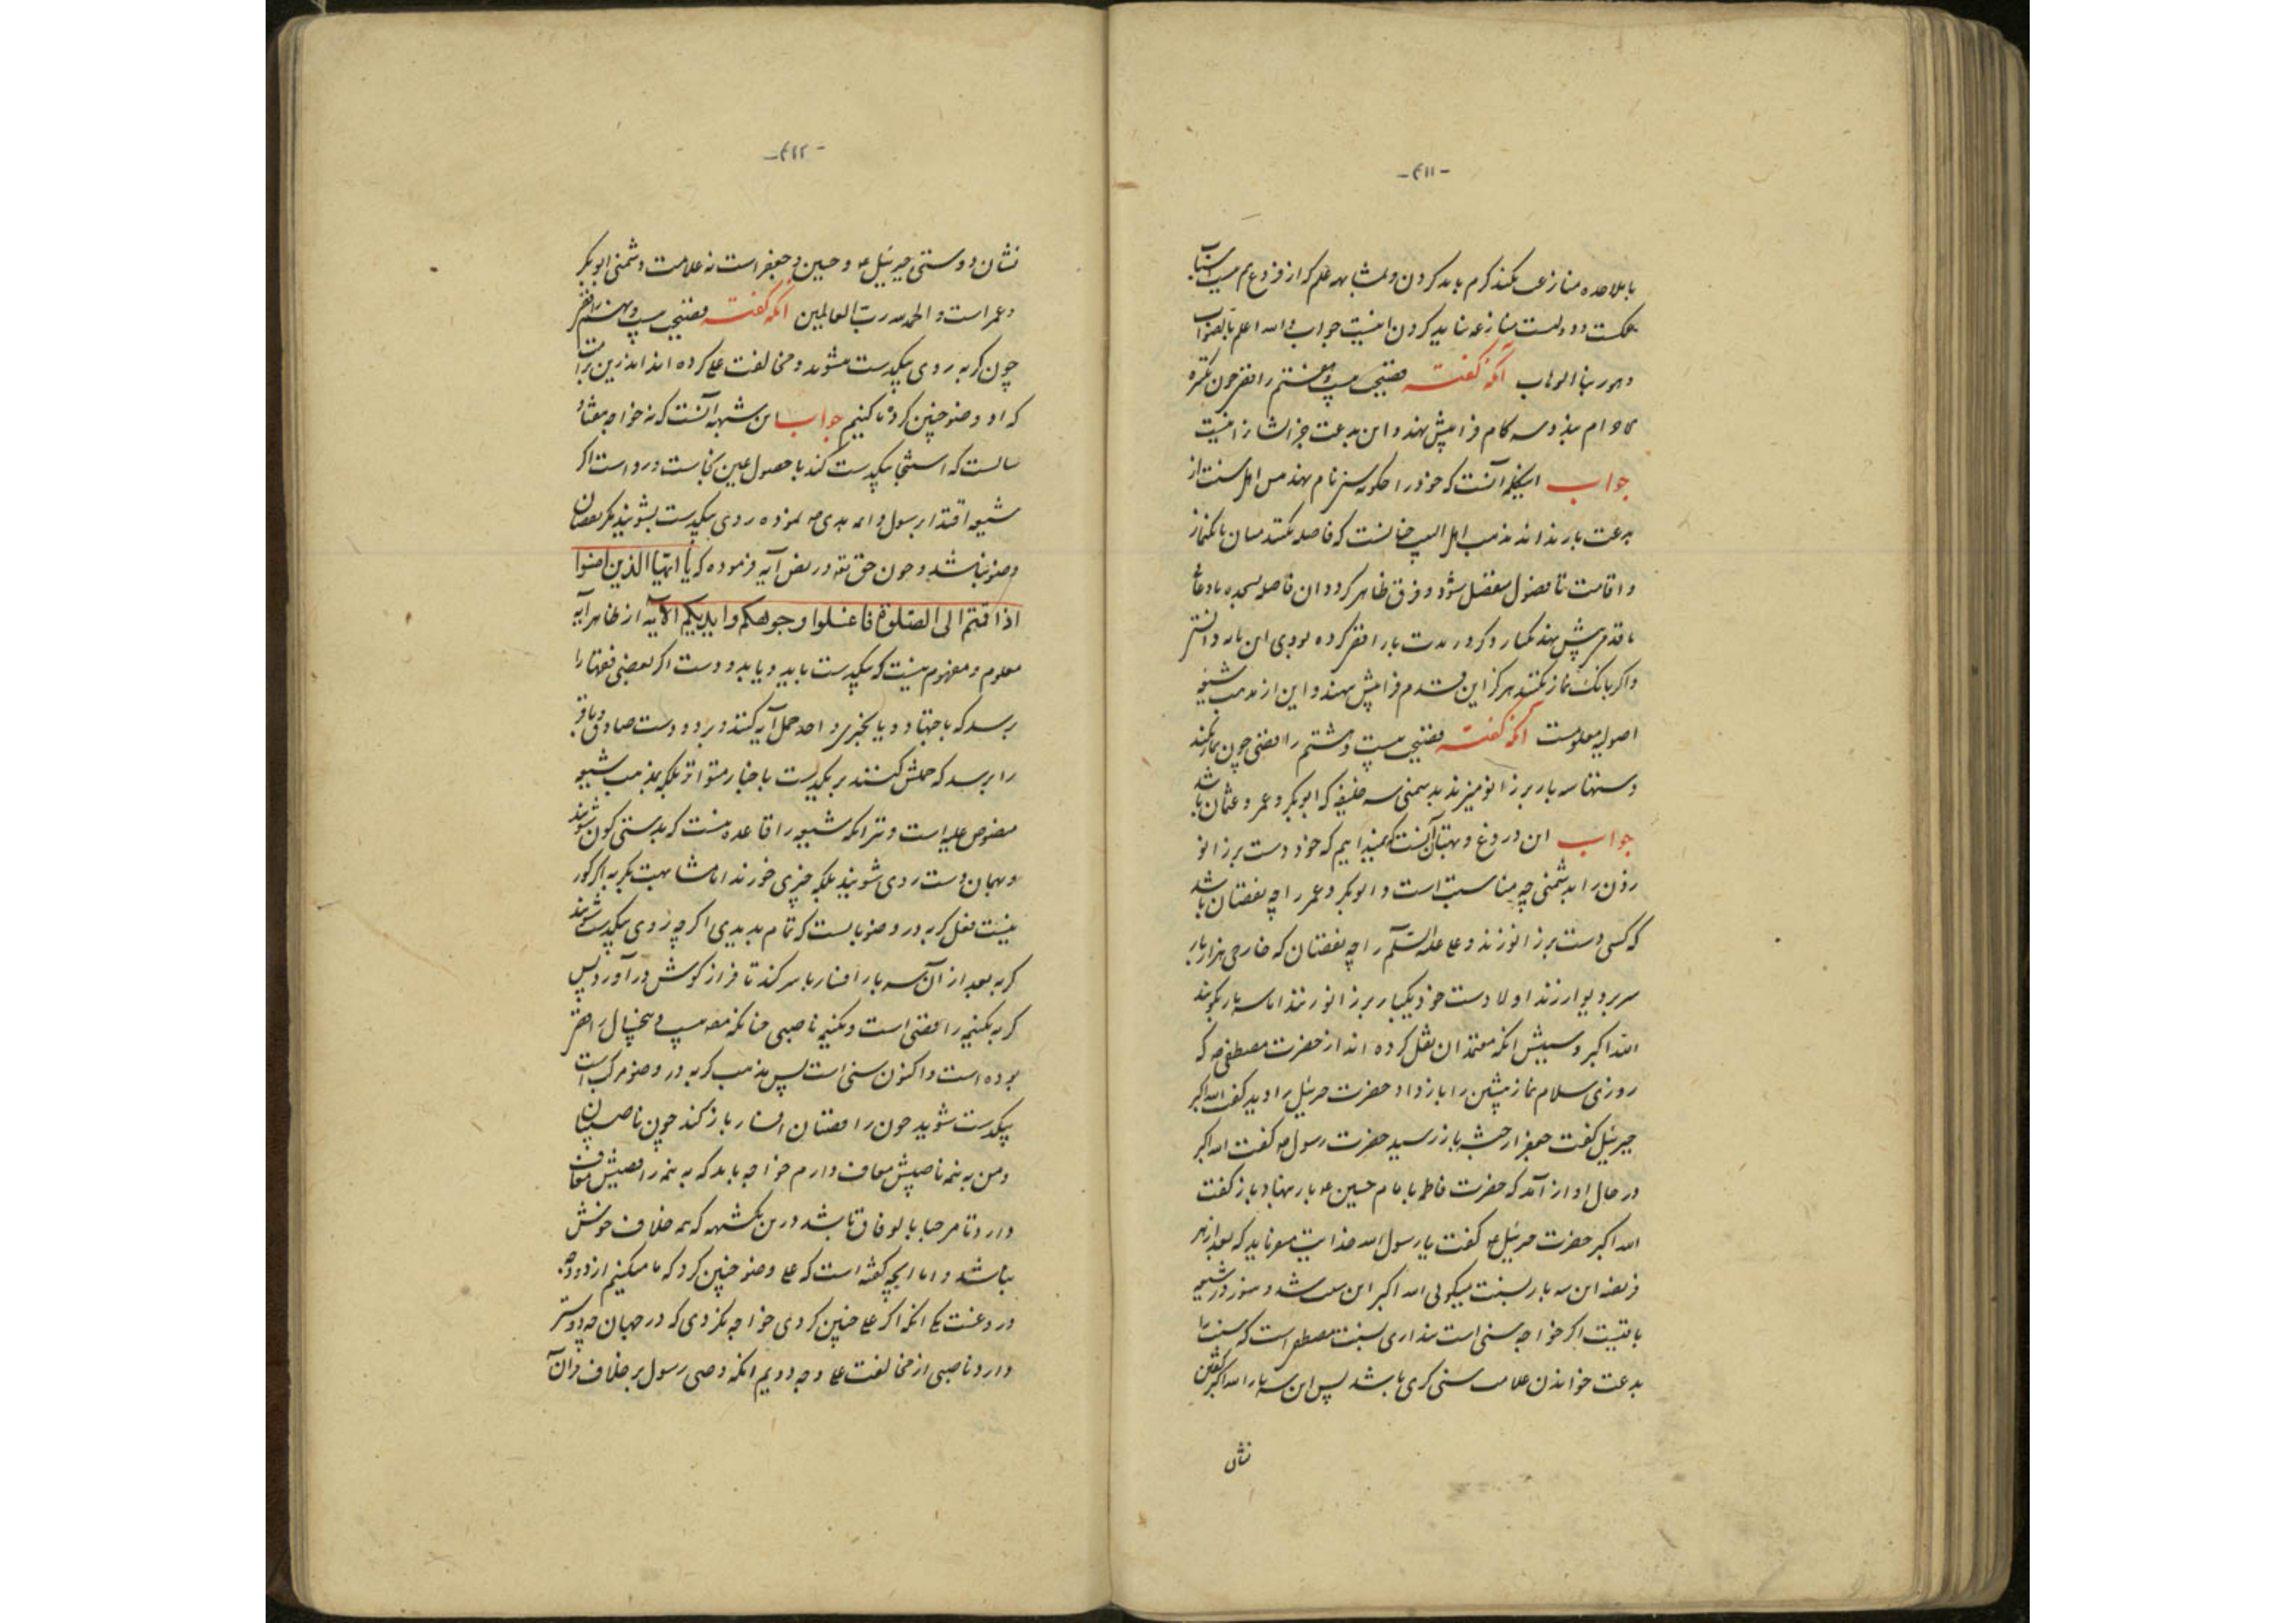 -۴۱۱-
با ملاحده منازعت نکند کرم باید کردن و بمشابهه علم که از فروع
حکمت و دولست منازعه نباید کردن اینست جواب و الله اعلم بالصواب
و هو ربنا الوهاب آنکه گفته فضیحت بیست و هفتم رافضی چون تکبیره
احرام ببندد سه کام فرا پیش نهد و این بدعت جز ایشان را نیست
جواب آنست که خود را حکونه سنی نام نهد من اهل سنت از
بدعت باز نداند مذهب اهل البیت چنانست که فاصله کنند میان بانک نماز
و اقامت تا فصول منفصل شود و فرق ظاهر کردد و آن فاصله بسجده یا دعا
یا قدم پیش نهد یکبار و کر در مدت یار رافضی کرده بودی این باید دانستن
و اکر بانک نماز نکنند هرکز این قدم فرا پیش ننهند و این از مذهب شیعه
اصولیه معلومست آنکه گفته فضیحت بیست و هشتم رافضی چون نماز بکند
دستها سه بار بر زانو میزند بدشمنی سه خلیفه که ابوبکر و عمر و عثمان باشد
جواب این دروغ و بهتان آنست که نمیدانیم که خود دست بر زانو
زدن را بدشمنی چه مناسبت است و ابوبکر و عمر را چه نقصان باشد
که کسی دست بر زانو زند و علی علیه السلام را چه نقصان که خارجی هزار بار
سر بر دیوار زند اولا دست خود یکبار بر زانو زنند اما سه بار بکویند
الله اکبر و سببش آنکه معتمدان نقل کرده اند از حضرت مصطفی ص که
روزی سلام نماز پیشین را باز داد حضرت جبرئیل را دید گفت الله اکبر
جبرئیل گفت جعفر از حبشه باز رسید حضرت رسول ص گفت الله اکبر
در حال آواز آمد که حضرت فاطمه بامام حسین ع بار نهاد باز گفت
الله اکبر حضرت جبرئیل ع گفت یا رسول الله خدایت میفرماید که بعد از هر
فریضه این سه بار بسنت میکوئی الله اکبر این سنت شد و هنوز در شیعه
باقیست اکر خواجه سنی است پنداری بسنت مصطفی است که سنت را
بدعت خواندن علامت سنی کری باشد پس این سه بار الله اکبر گفتن
نشان
-۴۱۲-
نشان دوستی جبرئیل ع و حسین و جعفر است نه علامت دشمنی ابوبکر
و عمر است و الحمد لله رب العالمین آنکه گفته فضیحت بیست و نهم رافضی
چون کربه روی بیکدست بشوید و مخالفت علی کرده اند اندرین
که او وضو چنین کرد که ما کنیم جواب این شبهه آنست که نه خواجه
سالست که استنجا بیکدست کند با حصول عین نجاست و رواست اکر
شیعه اقتدا برسول و ائمه هدی ص نموده روی بیکدست بشویند مکر نقصان
وضو نباشد و چون حق تعه در نص آیه فرموده که یا ایها الذین امنوا
اذا قمتم الی الصلوة فاغسلوا وجوهکم و ایدیکم الآیه از ظاهر آیه
معلوم و مفهوم نیست که بیکدست باید و یا بدو دست اکر بعضی فقها را
برسد که باجتهاد و یا بخبری واحد حمل آیه کنند بر دو دست صادق و باقر
را برسد که حملش کنند بر یکدست باخبار متواتر بلکه بمذهب شیعه
منصوص علیه است و تر آنکه شیعه را قاعده نیست که بدستی کون شویند
و بهمان دست روی شویند بلکه چیزی خورند اما مشابهت بکربه اکر کور
نیست فعل کربه در وضو بایست که تمام بدیدی اکر چه روی بیکدست شویند
کربه بعد از آن سه بار افسار با سر کند تا فراز کوش در آورد پس
کربه بکنیمه رافضی است و بکنیمه ناصبی چنانکه مصنف بیست و پنج سال رافضی
بوده است و اکنون سنی است پس مذهب کربه در وضو مرکب است
بیکدست شوید چون رافضیان افسار باز کند چون ناصبیان
و من به نیمه ناصبیش معاف دارم خواجه باید که به نیمه رافضیش معاف
دارد تا مرحبا بالوفاق باشد درین یکشبهه که نه خلاف خونش
نباشد و اما آنچه کفته است که علی وضو چنین کرد که ما میکنیم از دو وجه
دروغست یکی آنکه اکر علی چنین کردی خواجه نکردی که در جهان که دوستر
دارد ناصبی از مخالفت علی وجه دویم آنکه وصی رسول بر خلاف قرآن